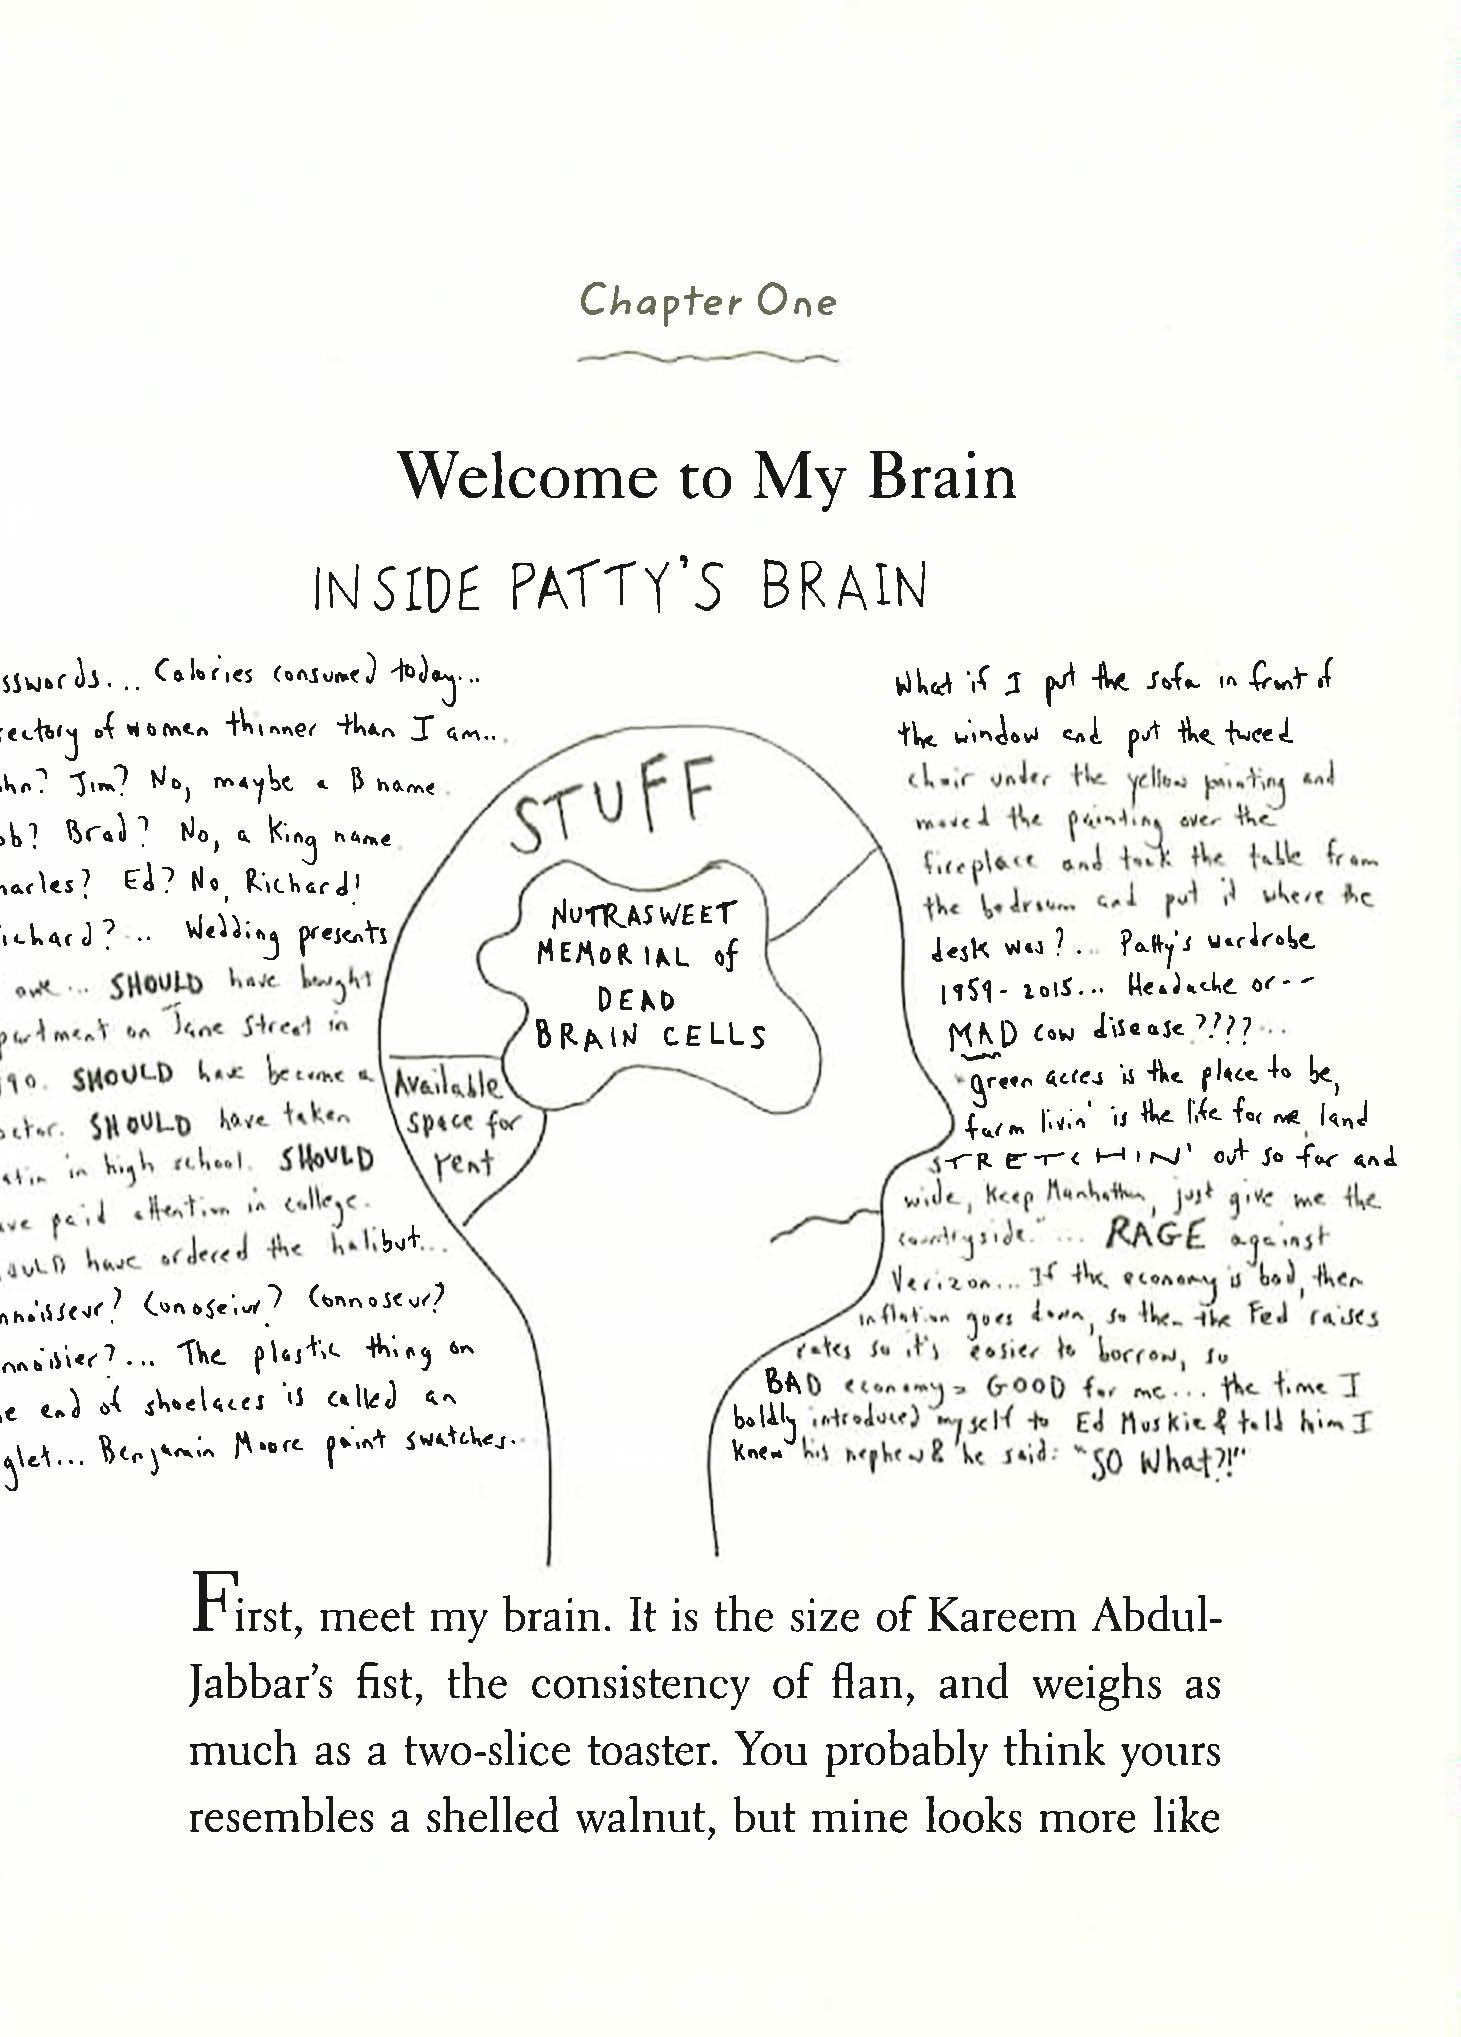 Chapter One
Welcome to My Brain
INSIDE PATTY'S BRAIN
sswords... Calories consumed today...
rectory of women thinner than I am...
hn? Jim? No, maybe a B name
ob? Brad? No, a King name
harles? Ed? No, Richard!
ichard?... Wedding presents
owe... SHOULD have bought
partment on Jane Street in
990. SHOULD have become a
octor. SHOULD have taken
atin in high school. SHOULD
ave paid attention in college.
HOULD have ordered the halibut...
nnoisseur? Conoseiur? Connoseur?
nnoisier?... The plastic thing on
e end of shoelaces is called an
glet... Benjamin Moore paint swatches...
STUFF
NUTRASWEET
MEMORIAL of
DEAD
BRAIN CELLS
Available
space for
rent
What if I put the sofa in front of
the window and put the tweed
chair under the yellow painting and
moved the painting over the
fireplace and took the table from
the bedroom and put it where the
desk was?... Patty's wardrobe
1959-2015... Headache or--
MAD cow disease????...
"green acres is the place to be,
farm livin' is the life for me, land
STRETCHIN' out so far and
wide, Keep Manhattan, just give me the
countryside."... RAGE against
Verizon... If the economy is bad, then
inflation goes down, so then the Fed raises
rates so it's easier to borrow, so
BAD economy = GOOD for me... the time I
boldly introduced myself to Ed Muskie & told him I
knew his nephew & he said: "SO What?!"
First, meet my brain. It is the size of Kareem Abdul-
Jabbar's fist, the consistency of flan, and weighs as
much as a two-slice toaster. You probably think yours
resembles a shelled walnut, but mine looks more like